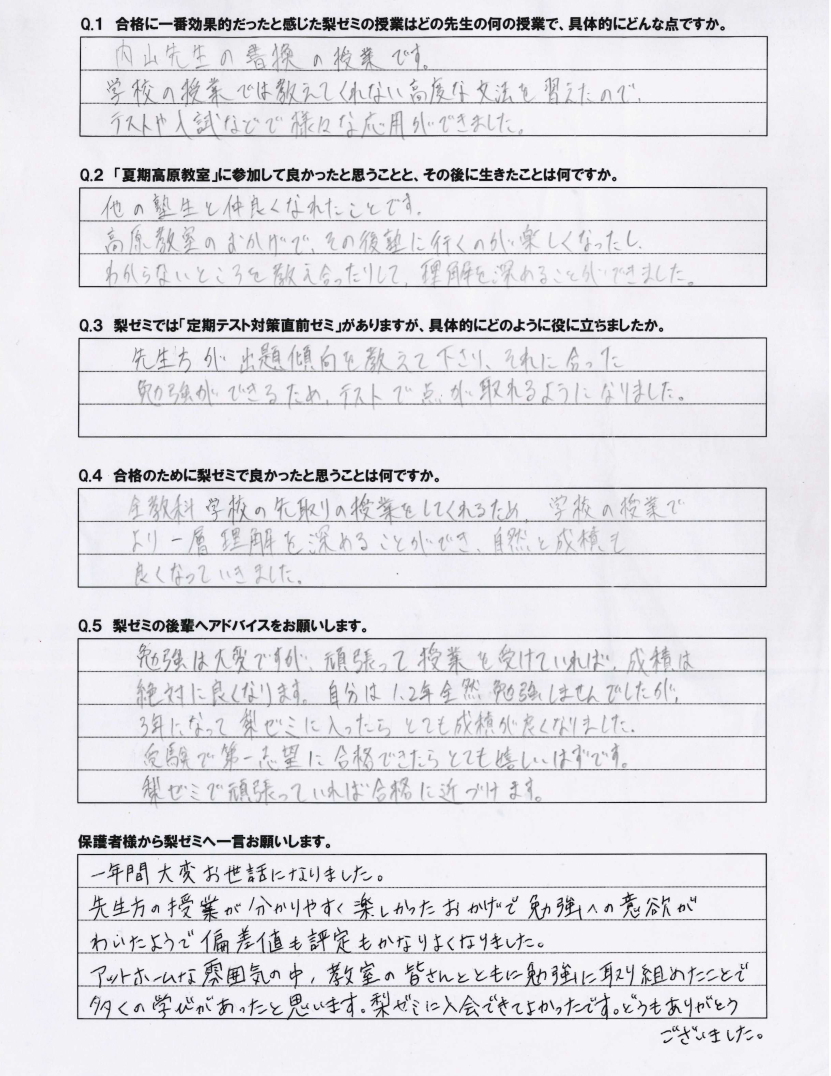 Q.1 合格に一番効果的だったと感じた梨ゼミの授業はどの先生の何の授業で、具体的にどんな点ですか。
内山先生の書換の授業です。
学校の授業では教えてくれない高度な文法を習えたので、
テストや入試などで様々な応用ができました。
Q.2 「夏期高原教室」に参加して良かったと思うことと、その後に生きたことは何ですか。
他の塾生と仲良くなれたことです。
高原教室のおかげで、その後塾に行くのが楽しくなったし、
わからないところを教え合ったりして、理解を深めることができました。
Q.3 梨ゼミでは「定期テスト対策直前ゼミ」がありますが、具体的にどのように役に立ちましたか。
先生方が出題傾向を教えて下さり、それに合った
勉強ができるため、テストで点が取れるようになりました。
Q.4 合格のために梨ゼミで良かったと思うことは何ですか。
全教科学校の先取りの授業をしてくれるため、学校の授業で
より一層理解を深めることができ、自然と成積も
良くなっていきました。
Q.5 梨ゼミの後輩へアドバイスをお願いします。
勉強は大変ですが、頑張って授業を受けていれば、成積は
絶対に良くなります。自分は1、2年全然勉強しませんでしたが、
3年になって梨ゼミに入ったらとても成積が良くなりました。
受験で第一志望に合格できたらとても嬉しいはずです。
梨ゼミで頑張っていれば合格に近づけます。
保護者様から梨ゼミへ一言お願いします。
一年間大変お世話になりました。
先生方の授業が分かりやすく楽しかったおかげで勉強への意欲が
わいたようで偏差値も評定もかなりよくなりました。
アットホームな雰囲気の中、教室の皆さんとともに勉強に取り組めたことで
多くの学びがあったと思います。梨ゼミに入会できてよかったです。どうもありがとう
ございました。